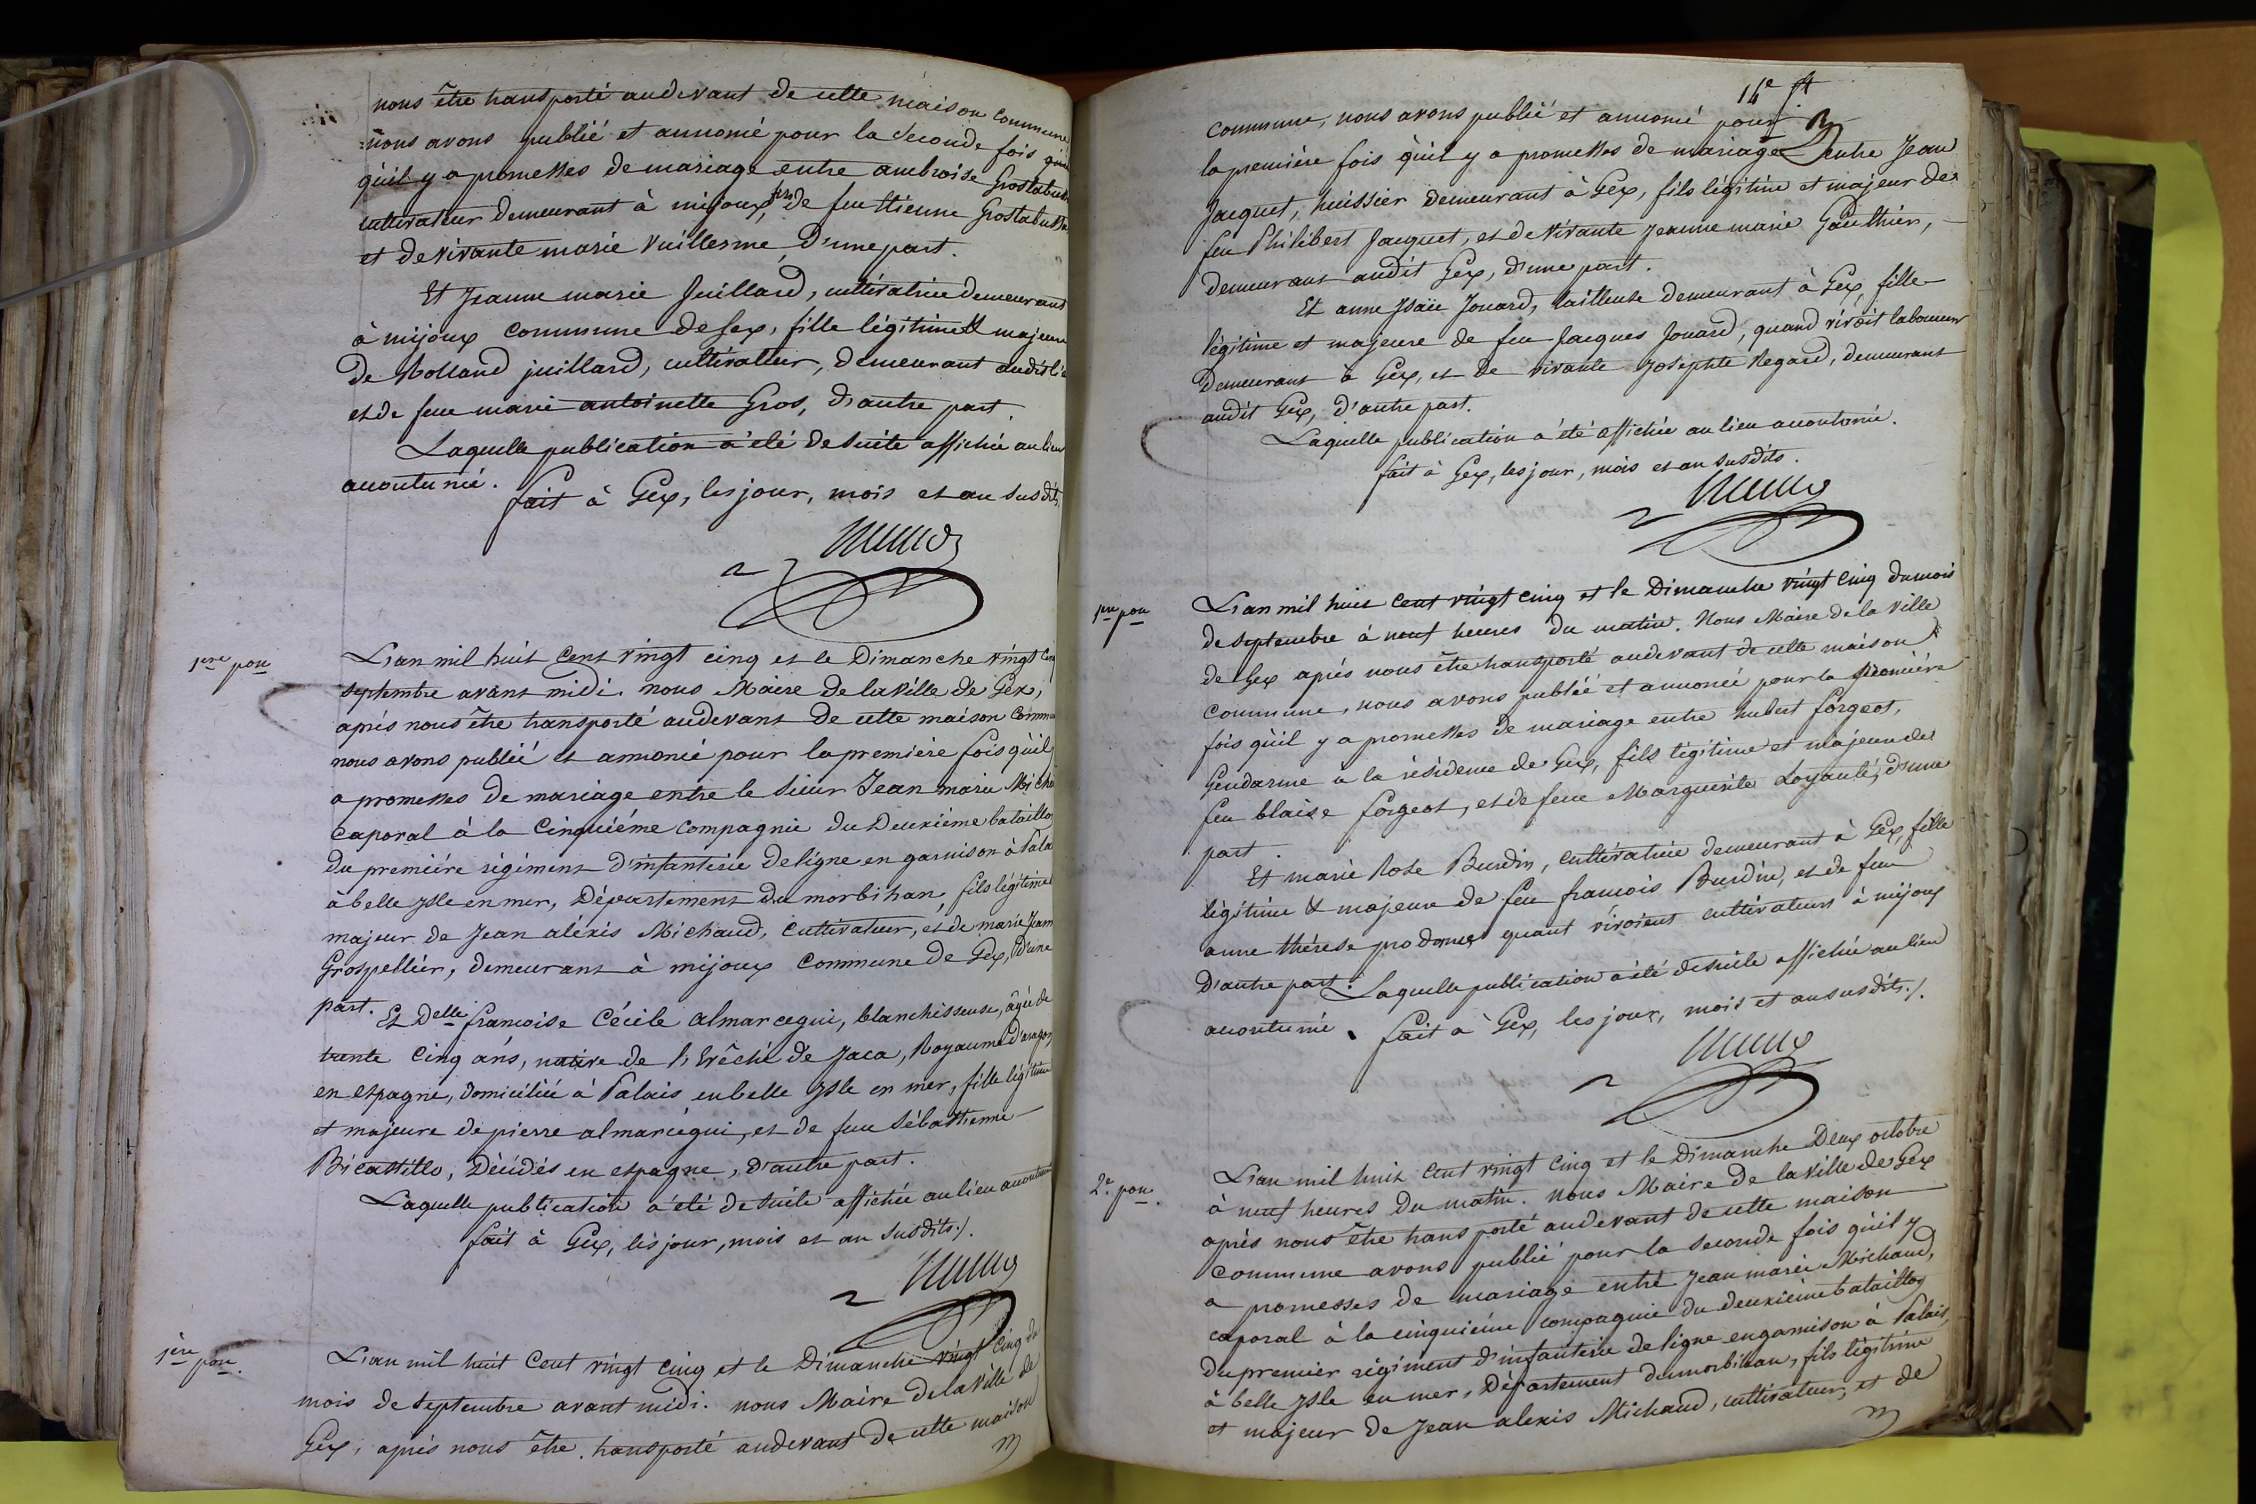 nous être transporté audevant de cette maison commune
nous avons publié et annoncé pour la seconde fois
qu'il y a promesses de mariage entre ambroise Grostabussiat
cultivateur demeurant à mijoux, fils de feu Etienne Grostabussiat
et de vivante marie Vuillerme, d'une part.
Et Jeanne marie Juillard, cultivatrice demeurant
à mijoux commune de Gex, fille légitime et majeure
de Rolland juillard, cultivateur, demeurant audit lieu
et de feue marie antoinette Gros, d'autre part.
Laquelle publication a été de suite affichée au lieu
accoutumé.
fait à Gex, les jour, mois et an susdits
1ere pon
L'an mil huit cent vingt cinq et le Dimanche vingt cinq
septembre avant midi. nous Maire de la Ville de Gex,
après nous être transporté audevant de cette maison commune
nous avons publié et annoncé pour la première fois qu'il y
a promesses de mariage entre le sieur Jean marie Michaud
caporal à la Cinquième compagnie du Deuxième bataillon
du premiére régiment d'infanterie de ligne en garnison à Palais
à belle isle en mer, Département du morbihan, fils légitime et
majeur de Jean aléxis Michaud, cultivateur, et de marie Jeanne
Grospellier, demeurant à mijoux commune de Gex, d'une
part.
Et Delle françoise Cécile almarcegui, blanchisseuse, âgée de
trente cinq ans, native de l'Evêché de Jaca, Royaume d'aragon
en espagne, domiciliée à Palais en belle isle en mer, fille légitime
et majeure de pierre almarcégui, et de feue Sébastienne
Bicastillo, décédés en espagne, d'autre part.
Laquelle publication a été de suite affichée au lieu accoutumé
fait à Gex, les jour, mois et an susdits./.
1ère pon.
L'an mil huit cent vingt cinq et le Dimanche vingt cinq du
mois de septembre avant midi. nous Maire de la ville de
Gex, après nous être transporté audevant de cette maison
14e ft
commune, nous avons publié et annoncé pour
la première fois qu'il y a promesses de mariage entre Jean
Jacquet, huissier demeurant à Gex, fils légitime et majeur de
feu Philibert Jacquet, et de vivante jeanne marie Gauthier,
demeurant audit Gex, d'une part.
Et anne Isaïe Jouard, tailleuse demeurant à Gex, fille
légitime et majeure de feu Jacques Jouard, quand vivoit laboureur
demeurant à Gex, et de vivante Josephte Regard, demeurant
audit Gex, d'autre part.
Laquelle publication a été affichée au lieu accoutumé.
fait à Gex, les jour, mois et an susdits.
1ere pon
L'an mil huit cent vingt cinq et le Dimanche vingt cinq du mois
de septembre à neuf heures du matin. Nous Maire de la ville
de Gex après nous être transporté audevant de cette maison
commune, nous avons publié et annoncé pour la première
fois qu'il y a promesses de mariage entre hubert forgeot,
Gendarme à la résidence de Gex, fils légitime et majeur de
feu blaise forgeot, et de feue Marguerite Loyauté, d'une
part.
Et marie Rose Burdin, cultivatrice demeurant à Gex, fille
légitime & majeure de feu françois Burdin, et de feue
anne thérese prodome quant vivoient cultivateurs à mijoux
d'autre part.
Laquelle publication a été desuite affichée au lieu
accoutumé. fait à Gex, les jour, mois et an susdits./.
2e pon.
L'an mil huit cent vingt cinq et le Dimanche Deux octobre
à neuf heures du matin. nous Maire de la ville de Gex
après nous être transporté audevant de cette maison
commune avons publié pour la seconde fois qu'il y
a promesses de mariage entre Jean marie Michaud,
caporal à la cinquième compagnie du deuxième bataillon
du premier régiment d'infanterie de ligne en garnison à Palais,
à belle isle en mer, Département du morbihan, fils légitime
et majeur de Jean alexis Michaud, cultivateur, et de